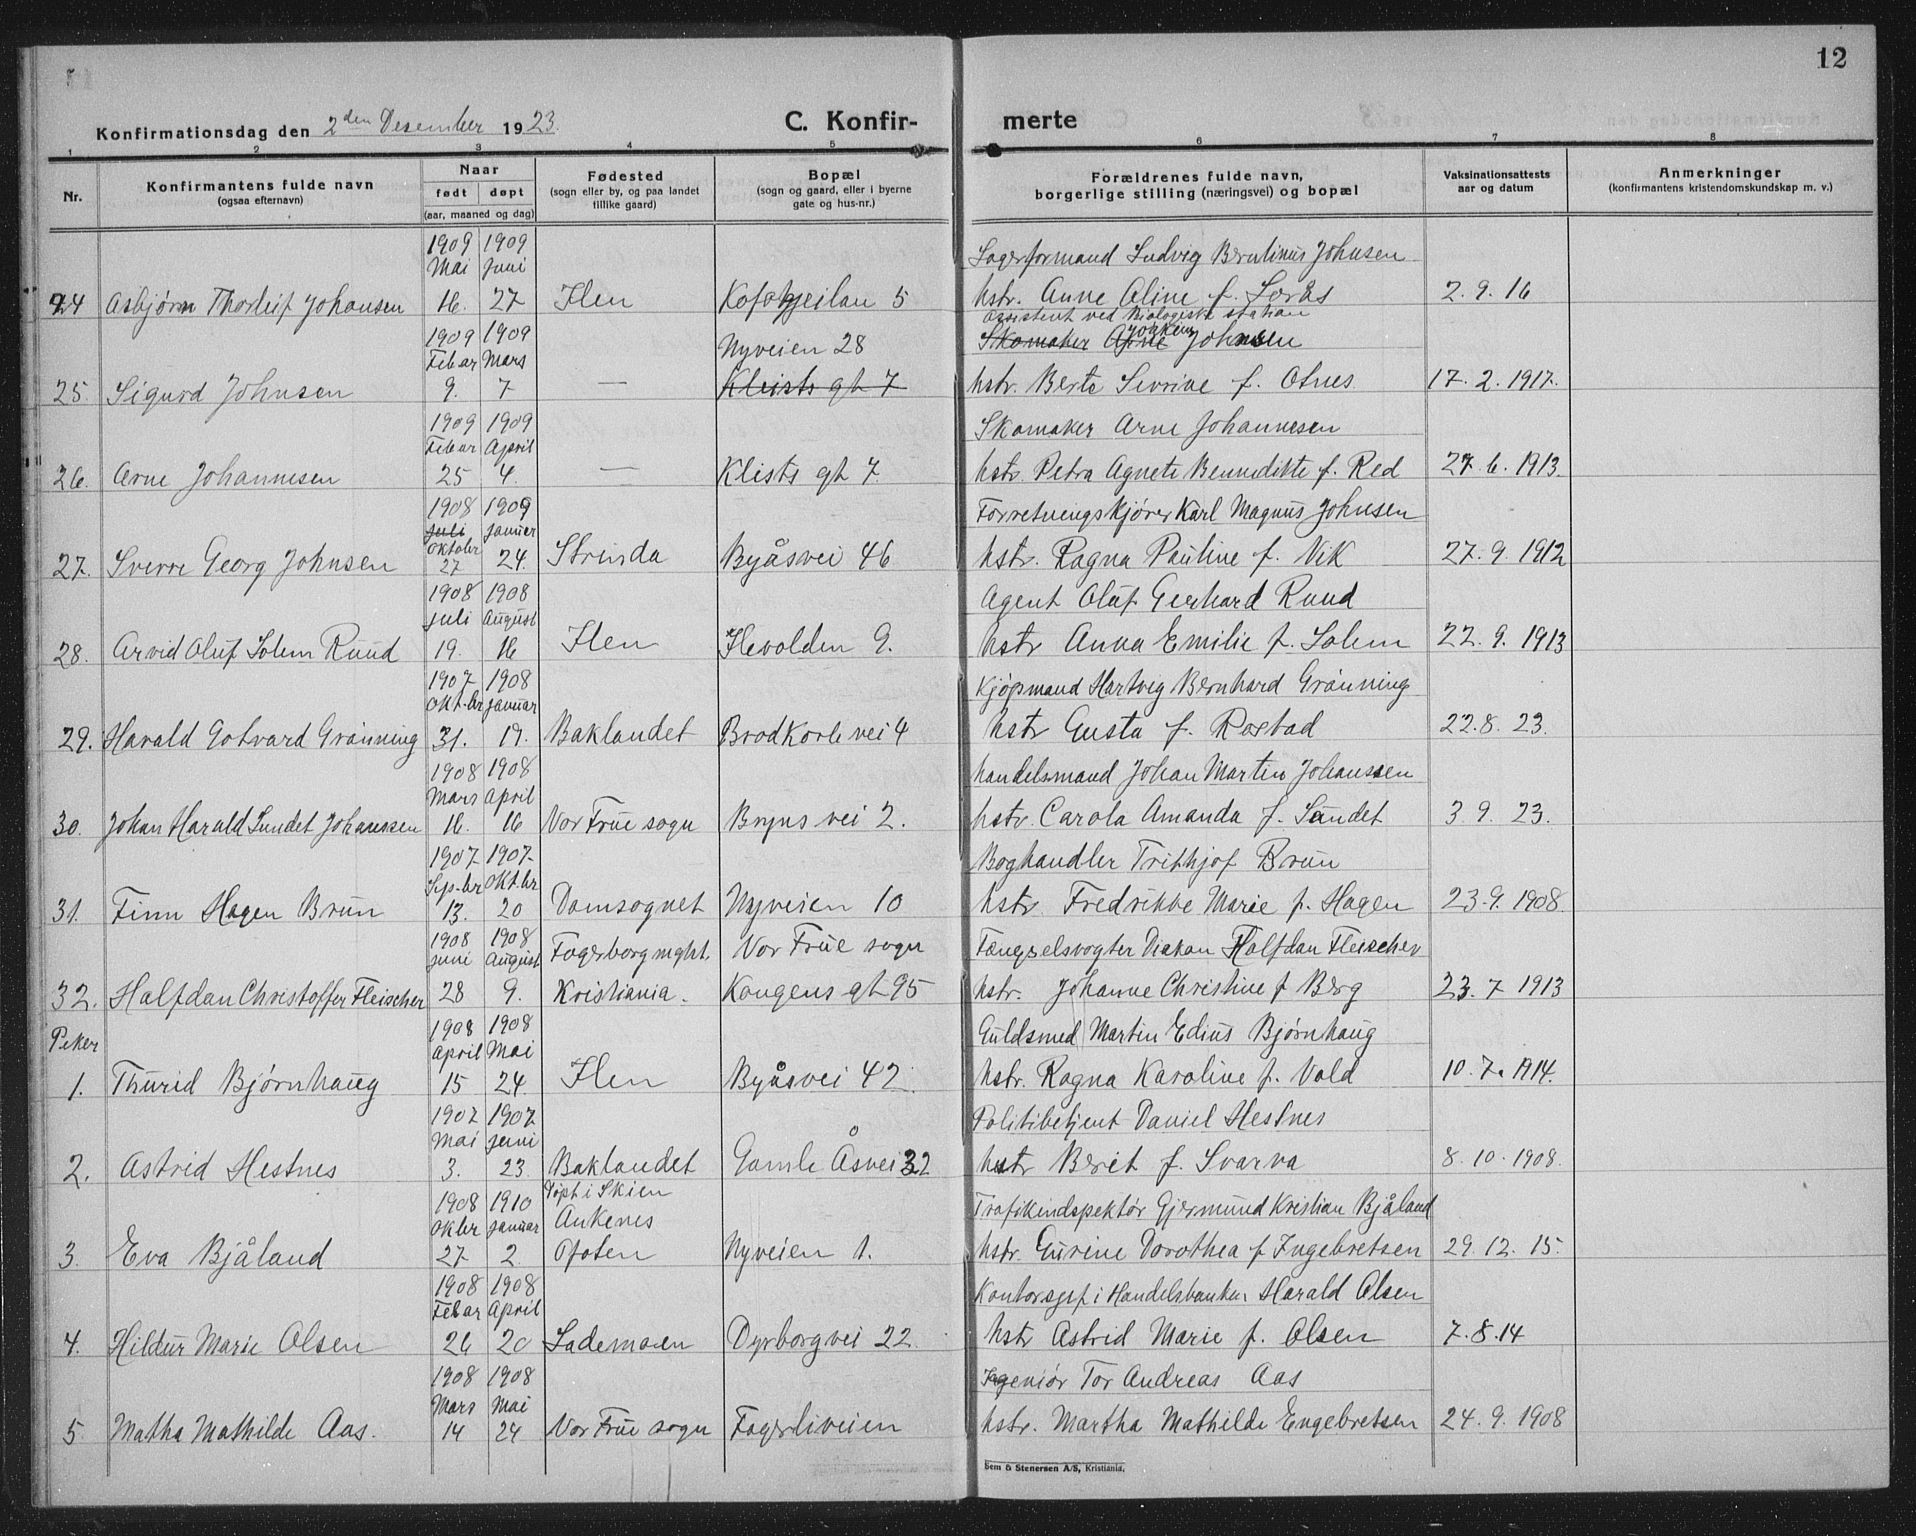 12
Konfirmationsdag den 2den Desember 1923.
C. Konfir- merte
1 2 3 4 5 6 7 8
Nr.
Konfirmantens fulde navn
(ogsaa efternavn)
Naar
født døpt
(aar, maaned og dag)
Fødested
(sogn eller by, og paa landet
tillike gaard)
Bopæl
(sogn og gaard, eller i byerne
gate og hus-nr.)
Forældrenes fulde navn,
borgerlige stilling (næringsvei) og bopæl
Vaksinationsattests
aar og datum
Anmerkninger
(konfirmantens kristendomskundskap m. v.)
1909 1909 Lagerformand Ludvig Berntinus Johnsen
Mai Juni
24 Asbjørn Thorleif Johansen 16. 27 Ilen 5 hstr. Anne Aline f. Lerås 2.9.16
assistent ved Biologiske station
1909 1909 Nyveien 28 Skomaker Arne Joakim Johnsen
Febar Mars
25. Sigurd Johnsen 9. 7 — Kleists gt 7 hstr. Berte Sivrine f. Otnes 17.2.1917.
1909 1909 Skomaker Arne Johannesen
Febar April
26. Arne Johannesen 25 4. — Klists gt 7. hstr. Petra Agnete Bennedikte f. Red 27.6.1913.
1908 1909 Forretningskjører Karl Magnus Johnsen
Juli Januar
Oktober
27. Sverre Georg Johnsen 27 24. Strinda Byåsvei 46 hstr. Ragna Pauline f. Vik 27.9.1912
1908 1908 Agent Oluf Gerhard Ruud
Juli August
28. Arvid Oluf Solem Ruud 19. 16 Ilen Ilevolden 9. hstr Anna Emilie f. Solem 22.9.1913
1907 1908 Kjøpmand Hartvig Bernhard Grønning
Okt-br Januar
29. Harald Gotvard Grønning 31. 19. Baklandet Brodkorb vei 4 hstr Gusta f. Rostad 22.8.23.
1908 1908 Handelsmand Johan Martin Johanssen
Mars April
30. Johan Harald Sundet Johanssen 16. 16 Vor Frue sogn Bryns vei 2. hstr. Carola Amanda f. Sundet 3 9. 23.
1907 1907. Boghandler Trithjof Brun
Sep-br Okt.br
31. Finn Hagen Brun 13. 20 Domsognet Nyveien 10 hstr Fredrikke Marie f. Hagen 23.9.1908.
1908 1908 Fagerborg mght. Vor Frue sogn Fængselsvogter Diakon Halfdan Fleischer
Juni August
32. Halfdan Christoffer Fleischer 28 9. Kristiania. Kongens gt 95 hstr. Johanne Christine f Berg 23.7 1913
Piker 1908 1908 Guldsmed Martin Edius Bjørnhaug
April Mai
1. Thurid Bjørnhaug 15 24. Ilen Byåsvei 42. hstr. Ragna Karoline f. Vold 10.7.1914.
1907 1907 Politibetjent Daniel Hestnes
Mai Juni
2. Astrid Hestnes 3. 23. Baklandet Gamle Åsvei 32 hstr Berit f. Svarva 8.10.1908.
1908 1910 Døpt i Skien Trafikindspektør Gjermund Kristian Bjåland
Okbr Januar Ankenes
3. Eva Bjåland 27 2. Ofoten Nyveien 1. hstr. Gurine Dorothea f Ingebretsen 29.12.15.
1908 1908 Kontorsjef i Handelsbanken Harald Olsen
Febar April
4. Hildur Marie Olsen 26 20 Lademoen Dyrborgvei 22. hstr Astrid Marie f. Olsen 7.8.14
1908 1908 Ingeniør Tor Andreas Aas
Mars Mai
5. Matha Mathilde Aas. 14 24 Vor Frue sogn Fagerliveien hstr. Martha Mathilde Engebretsen 24.9.1908
Sem & Stenersen A/S, Kristiania.